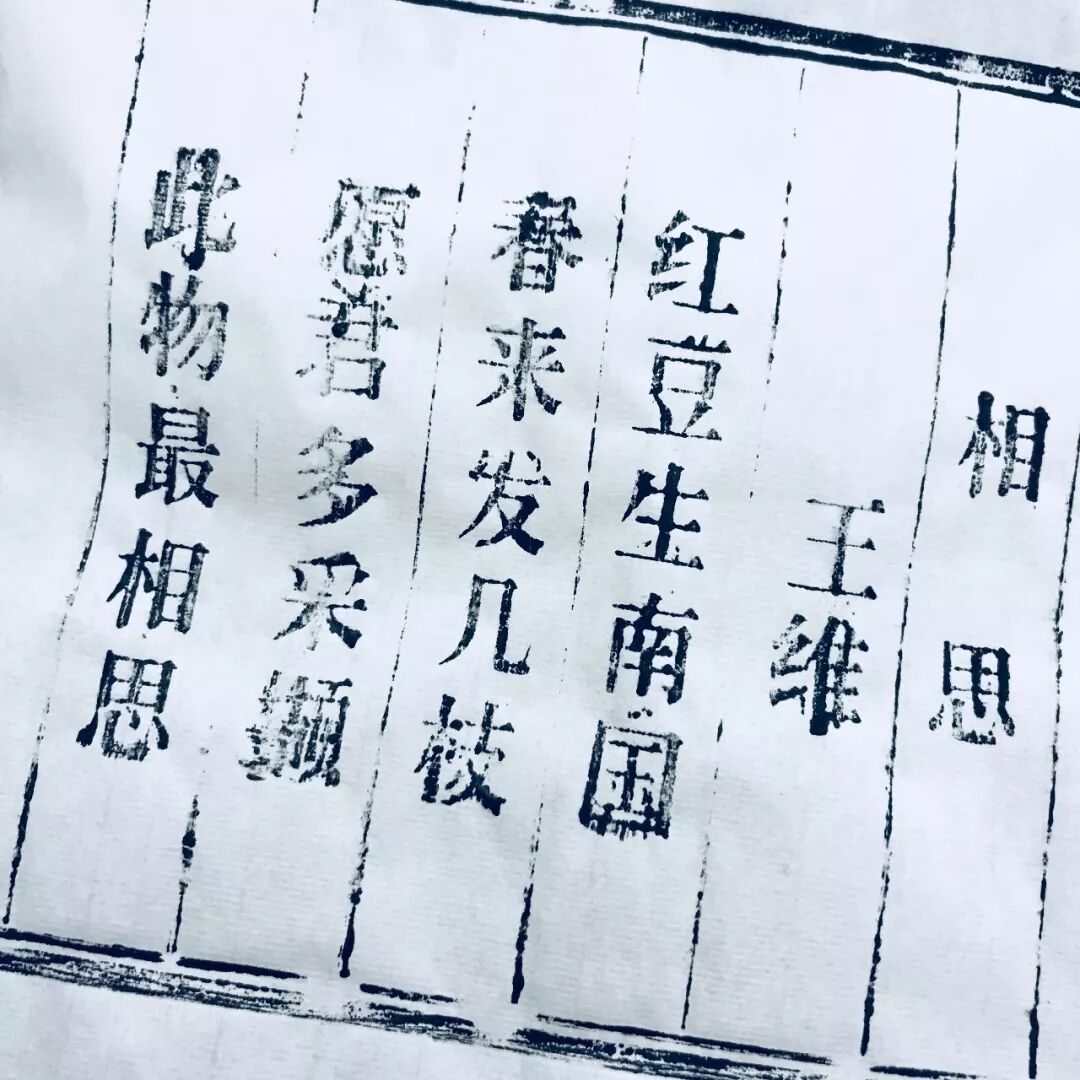 相思
王维
红豆生南国
春来发几枝
愿君多采撷
此物最相思